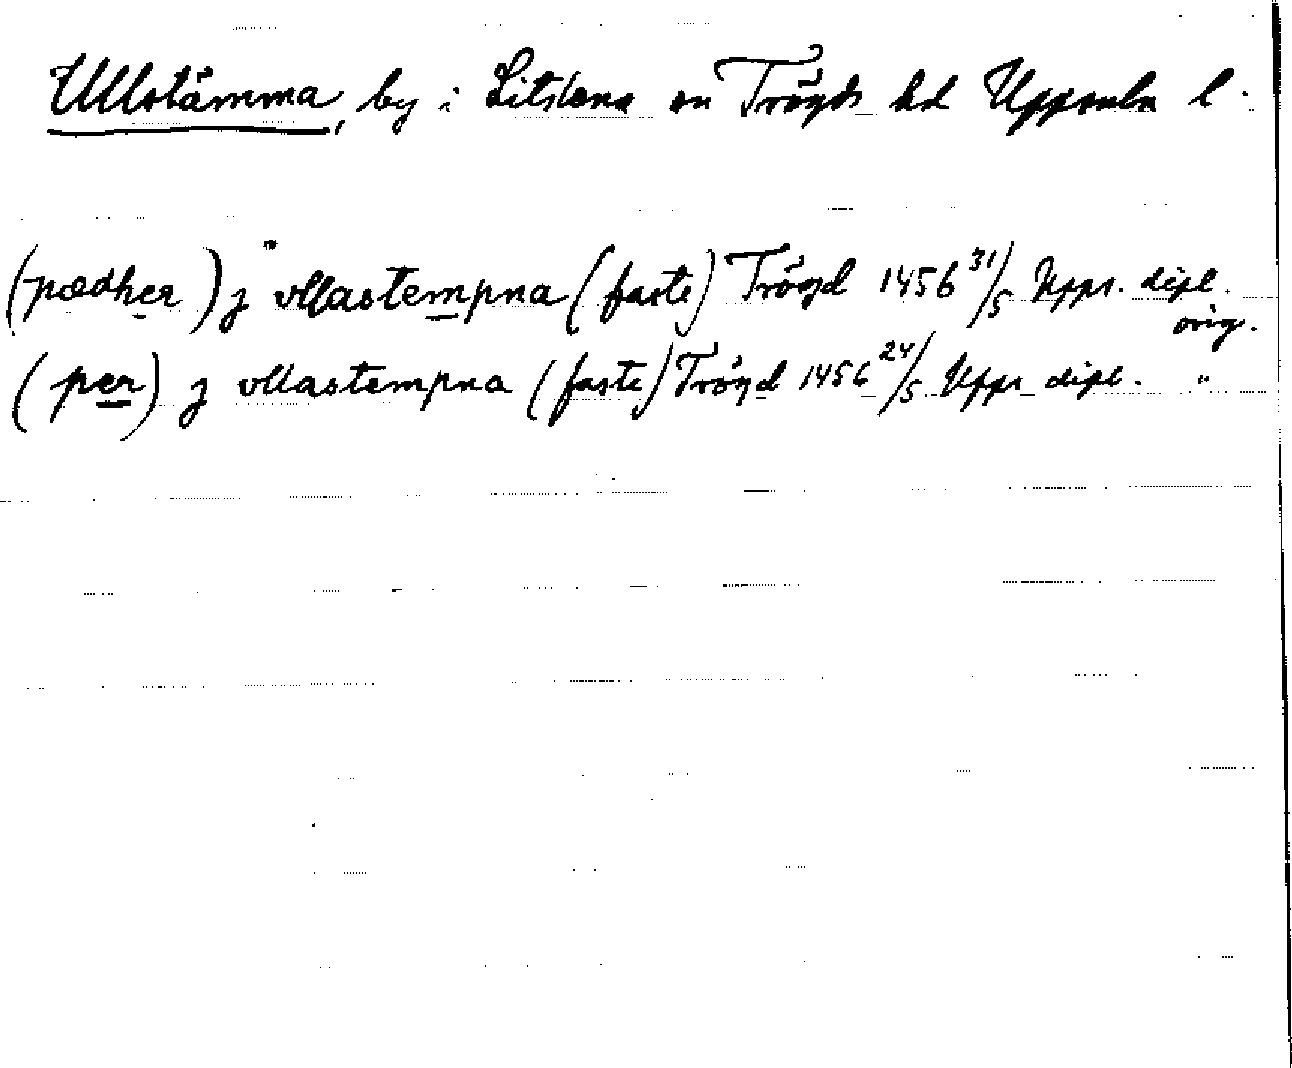 Ullstämma, by i Litslena sn Trögds hd Uppsala l.
(pædher) j vllastempna (faste) Trögd 1456 31/5 Upps. dipl. orig.
(per) j vllastempna (faste) Trögd 1456 24/5 Upps dipl. "